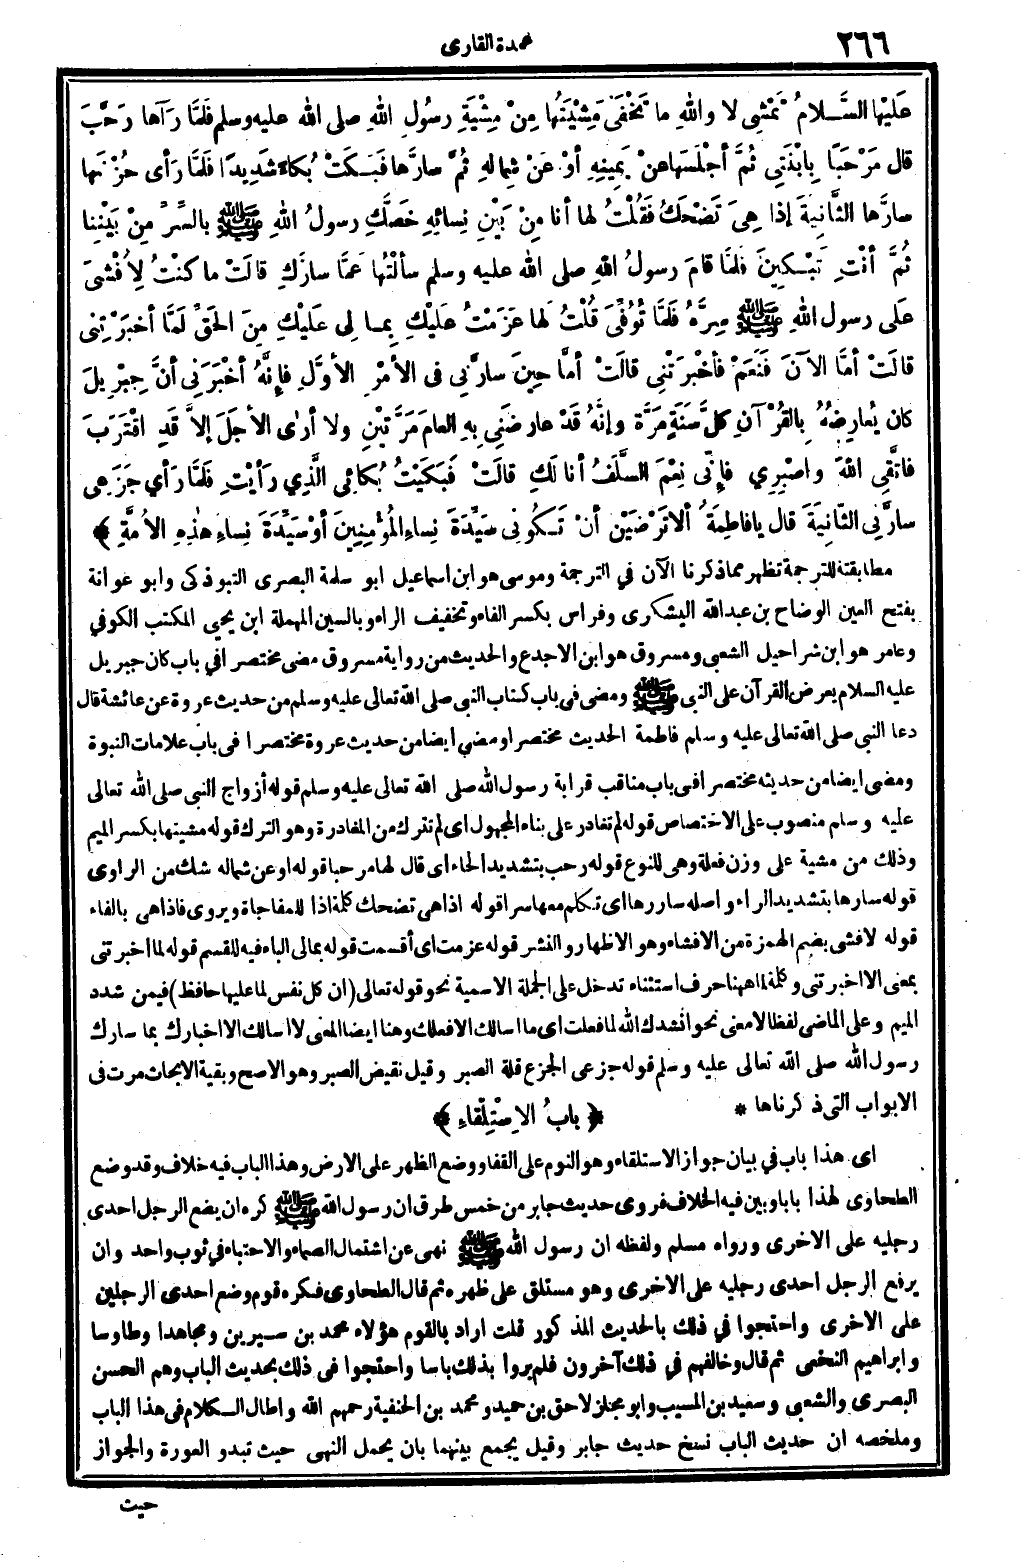 ٢٦٦
عمدة القارى
عَلَيْها السَّلامُ تَمْشِى لا واللهِ ما تَخْفَى مَشْيَتُها مِنْ مِشْيَةِ رسُولِ اللهِ صلى الله عليه وسلم فَلمَّا رَآها رَحَّبَ
قال مَرْحَبًا بِابْنَتِى ثُمَّ أجْلَسَها عنْ يَمِينِهِ أوْ عَنْ شِمالِهِ ثُمَّ سارَّها فَبَكَتْ بُكاءً شَدِيدًا فَلَمَّا رَأى حُزْنَها
سارَّها الثَّانِيَةَ إذا هِىَ تَضْحَكُ فَقُلْتُ لها أنا مِنْ بَيْنِ نِسائِهِ خَصَّكِ رسولُ اللهِ ﷺ بالسِّرِّ مِنْ بَيْنِنا
ثُمَّ أنْتِ تَبْكِينَ فلَمَّا قامَ رسولُ اللهِ صلى الله عليه وسلم سألْتُها عَمَّا سارَّكِ قالَتْ ما كنْتُ لِأُفْشِىَ
عَلى رسول اللهِ ﷺ سِرَّهُ فَلمَّا تُوُفِّىَ قُلْتُ لها عَزَمْتُ عَلَيْكِ بِما لِى عَلَيْكِ مِنَ الحَقِّ لَمَّا أخبَرْتِنِى
قالَتْ أمَّا الآنَ فَنَعَمْ فأخْبَرَتْنِى قالَتْ أمَّا حِينَ سارَّنِى فى الأمْرِ الأوَّلِ فإنَّهُ أخْبَرَنِى أنَّ جِبْرِيلَ
كان يُعارِضُهُ بِالقُرْآنِ كلَّ سَنَةٍ مَرَّةً وإنَّهُ قَدْ عارضَنِى بِهِ العامَ مَرَّتَيْنِ ولا أرَى الأجَلَ إلاَّ قَدِ اقْتَرَبَ
فاتَّقِى اللهَ واصْبِرِي فإنِّى نِعْمَ السَّلَفُ أنا لَكِ قالَتْ فَبَكَيْتُ بُكائِى الَّذِي رَأيْتِ فلَمَّا رَأي جَزَعِى
سارَّنِى الثَّانِيَةَ قال يافاطِمَةُ ألا تَرْضَيْنَ أنْ تَكُونِى سَيِّدَةَ نِساءِ المُؤْمِنِينَ أوْ سَيِّدَةَ نِساءِ هٰذِهِ الأمَّةِ ﴾
مطابقته للترجمة تظهر مما ذكرنا الآن في الترجمة وموسى هو ابن اسماعيل ابو سلمة البصرى التبوذكى وابو عوانة
بفتح العين الوضاح بن عبدالله اليشكرى وفراس بكسر الفاء وتخفيف الراء وبالسين المهملة ابن يحيى المكتب الكوفي
وعامر هو ابن شراحيل الشعبى ومسروق هو ابن الاجدع والحديث من رواية مسروق مضى مختصرا في باب كان جبريل
عليه السلام يعرض القرآن على النبى ﷺ ومضى فى باب كتاب النبى صلى الله تعالى عليه وسلم من حديث عروة عن عائشة قال
دعا النبى صلى الله تعالى عليه وسلم فاطمة الحديث مختصر او مضى ايضا من حديث عروة مختصرا فى باب علامات النبوة
ومضى ايضا من حديثه مختصرا فى باب مناقب قرابة رسول الله صلى الله تعالى عليه وسلم قوله أزواج النبى صلى الله تعالى
عليه وسلم منصوب على الاختصاص قوله لم تغادر على بناء المجهول اى لم تترك من المغادرة وهو الترك قوله مشيتها بكسر الميم
وذلك من مشية على وزن فعلة وهى للنوع قوله رحب بتشديد الحاء اى قال لها مرحبا قوله او عن شماله شك من الراوى
قوله سارها بتشديد الراء واصله ساررها اى تكلم معها سرا قوله اذاهى تضحك كلمة اذا للمفاجاة ويروى فاذاهى بالفاء
قوله لافشى بضم الهمزة من الافشاء وهو الاظهار والنشر قوله عزمت اى أقسمت قوله بمالى الباء فيه للقسم قوله لما اخبرتنى
بمعنى الا اخبرتنى وكلمة لما ههنا حرف استثناء تدخل على الجملة الاسمية نحو قوله تعالى (ان كل نفس لما عليها حافظ) فيمن شدد
الميم وعلى الماضى لفظا لا معنى نحو انشدك الله لما فعلت اى ما اسالك الافعلك وهنا ايضا المعنى لا اسالك الا اخبارك بما سارك
رسول الله صلى الله تعالى عليه وسلم قوله جزعى الجزع قلة الصبر وقيل نقيض الصبر وهو الاصح وبقية الابحاث مرت فى
الابواب التى ذكرناها *
﴿ بابُ الاِسْتِلْقاءِ ﴾
اى هذا باب في بيان جواز الاستلقاء وهو النوم على القفا ووضع الظهر على الارض وهذا الباب فيه خلاف وقد وضع
الطحاوى لهذا بابا وبين فيه الخلاف فروى حديث جابر من خمس طرق ان رسول الله ﷺ كره ان يضع الرجل احدى
رجليه على الاخرى ورواه مسلم ولفظه ان رسول الله ﷺ نهى عن اشتمال الصماء والاحتباء في ثوب واحد وان
يرفع الرجل احدى رجليه على الاخرى وهو مستلق على ظهره ثم قال الطحاوى فكره قوم وضع احدى الرجلين
على الاخرى واحتجوا في ذلك بالحديث المذكور قلت اراد بالقوم هؤلاء محمد بن سيرين ومجاهدا وطاوسا
وابراهيم النخعى ثم قال وخالفهم في ذلك آخرون فلم يروا بذلك باسا واحتجوا فى ذلك بحديث الباب وهم الحسن
البصرى والشعبى وسعيد بن المسيب وابو مجلز لاحق بن حميد ومحمد بن الحنفية رحمهم الله واطال الكلام فى هذا الباب
وملخصه ان حديث الباب نسخ حديث جابر وقيل يجمع بينهما بان يحمل النهى حيث تبدو العورة والجواز
حيث